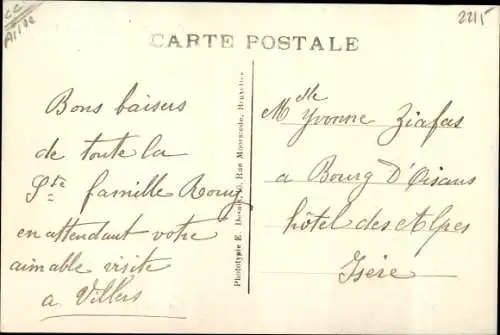 CC
2215
CARTE POSTALE
Bons baisers
de toute la
Ste famille Rouy
en attendant votre
aimable visite
a Villers
Phototypie E. Desaix, Rue Monnoade, Bruxelles
Mlle Yvonne Ziafas
a Bourg D'Oisans
hôtel des Alpes
Isère